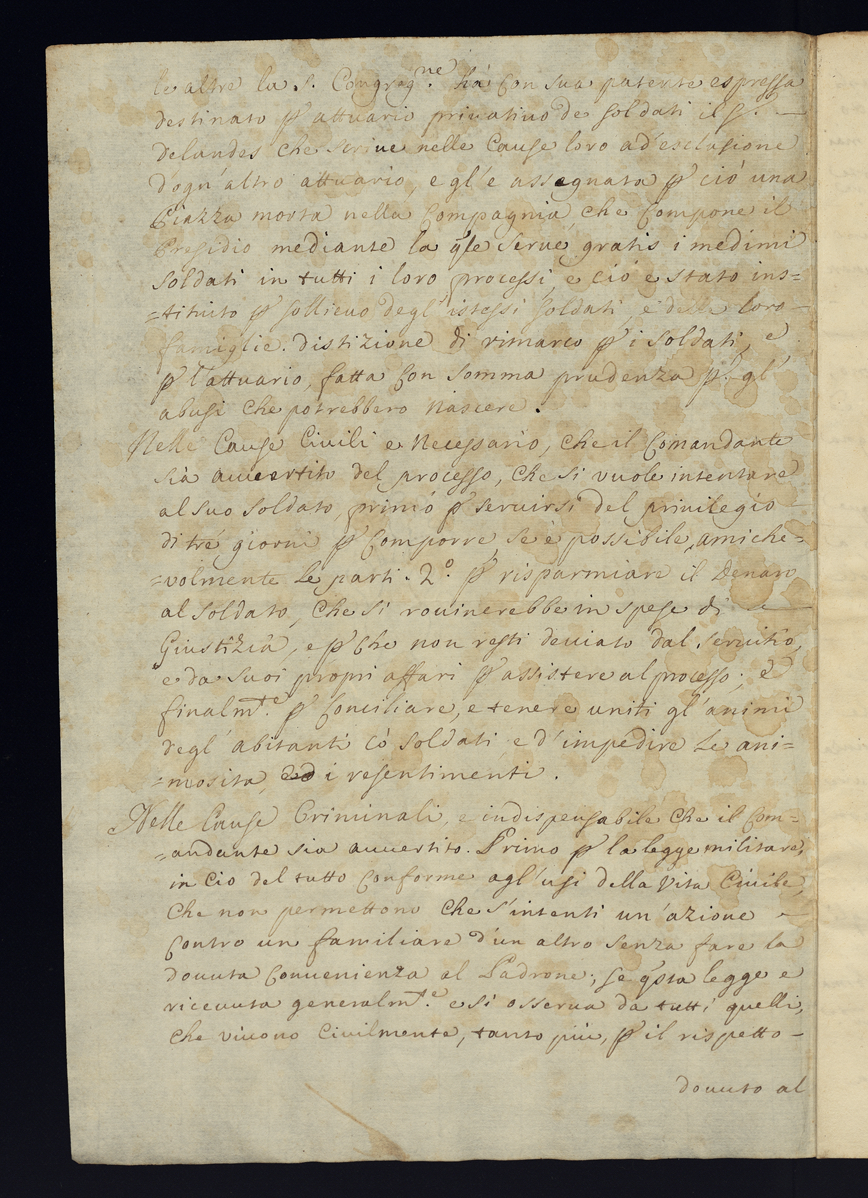 le altre la S. Congreg.ne ha con sua patente espressa
destinato p attuario privativo de soldati il S.
Delandes che scrive nelle Cause loro ad'esclusione
d'ogn'altro attuario, e gl'e assegnata p ciò una
Piazza morta nella Compagnia, che Compone il
Presidio mediante la qle serve gratis i medimi
soldati in tutti i loro processi, e ciò e stato ins=
=tituito p sollievo degl'istessi soldati, e delle loro
famiglie. distizione di rimarco p i soldati, e
p l'attuario, fatta Con somma prudenza p gl'
abusi che potrebbero nascere.
Nelle Cause Civili e Necessario, che il Comandante
sia avvertito del processo, che si vuole intentare
al suo soldato, primo p servirsi del privilegio
di tre giorni p Comporre se è possibile, amiche=
=volmente le parti. 2.o p risparmiare il Denaro
al soldato, che si rovinerebbe in spese di
Giustizia, e p che non resti deviato dal servitio,
e da suoi propri affari p assistere al processo; e
finalm.te p Conciliare, e tenere uniti gl'animi
degl'abitanti cò soldati e d'impedire le ani=
=mosita, ed i resentimenti.
Nelle Cause Criminali, e indispensabile che il Com=
=andante sia avvertito. Primo p la legge militare,
in cio del tutto Conforme agl'usi della Vita Civile,
che non permettono che s'intenti un'azione
Contro un familiare d'un altro senza fare la
dovuta Convenienza al Padrone; se q'sta legge e
ricevuta generalm.te e si osserva da tutti quelli,
che vivono Civilmente, tanto più, p il rispetto
dovuto al